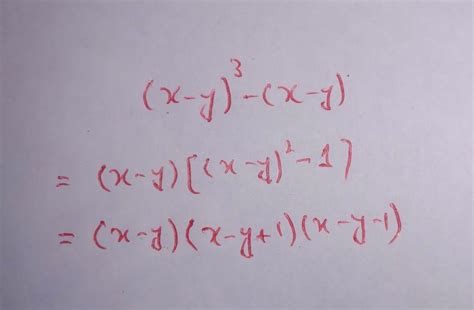 (x-y)³-(x-y)
= (x-y)[(x-y)²-1]
= (x-y)(x-y+1)(x-y-1)